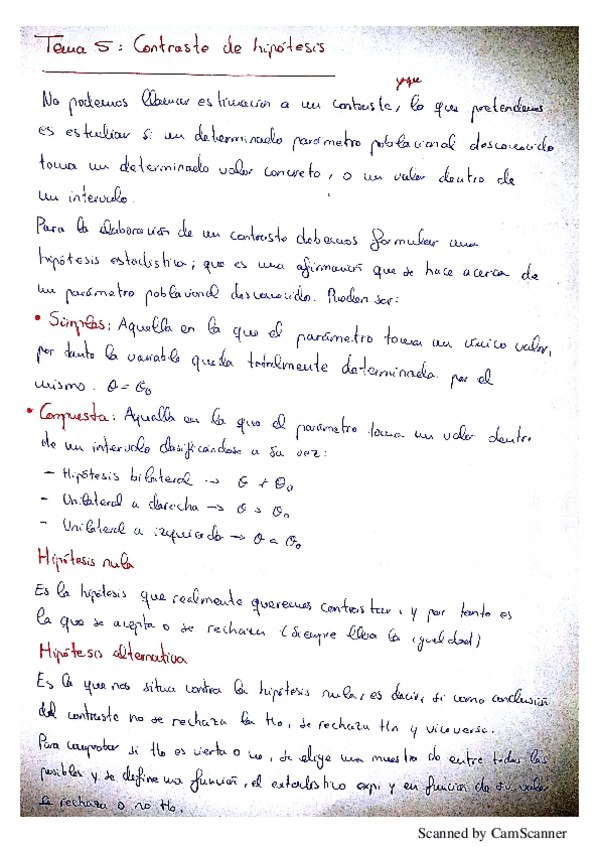 Tema 5: Contraste de hipótesis
yque
No podemos llamar estimación a un contraste, lo que pretendemos
es estudiar si un determinado parámetro poblacional desconocido
toma un determinado valor concreto, o un valor dentro de
un intervalo.
Para la elaboración de un contraste debemos formular una
hipótesis estadística; que es una afirmación que se hace acerca de
un parámetro poblacional desconocido. Pueden ser:
• Simples: Aquella en la que el parámetro toma un único valor,
por tanto la variable queda totalmente determinada por el
mismo. θ = θ₀
• Compuesta: Aquella en la que el parámetro toma un valor dentro
de un intervalo clasificándose a su vez:
- Hipótesis bilateral → θ ≠ θ₀
- Unilateral a derecha → θ > θ₀
- Unilateral a izquierda → θ < θ₀
Hipótesis nula
Es la hipótesis que realmente queremos contrastar, y por tanto es
la que se acepta o se rechaza (siempre lleva la igualdad)
Hipótesis alternativa
Es la que nos situa contra la hipótesis nula, es decir, si como conclusión
del contraste no se rechaza la H₀, se rechaza H₁ y viceversa.
Para comprobar si H₀ es cierta o no, se elige una muestra de entre todas las
posibles y se define una función, el estadístico exp; y en función de su valor
se rechaza o no H₀.
Scanned by CamScanner